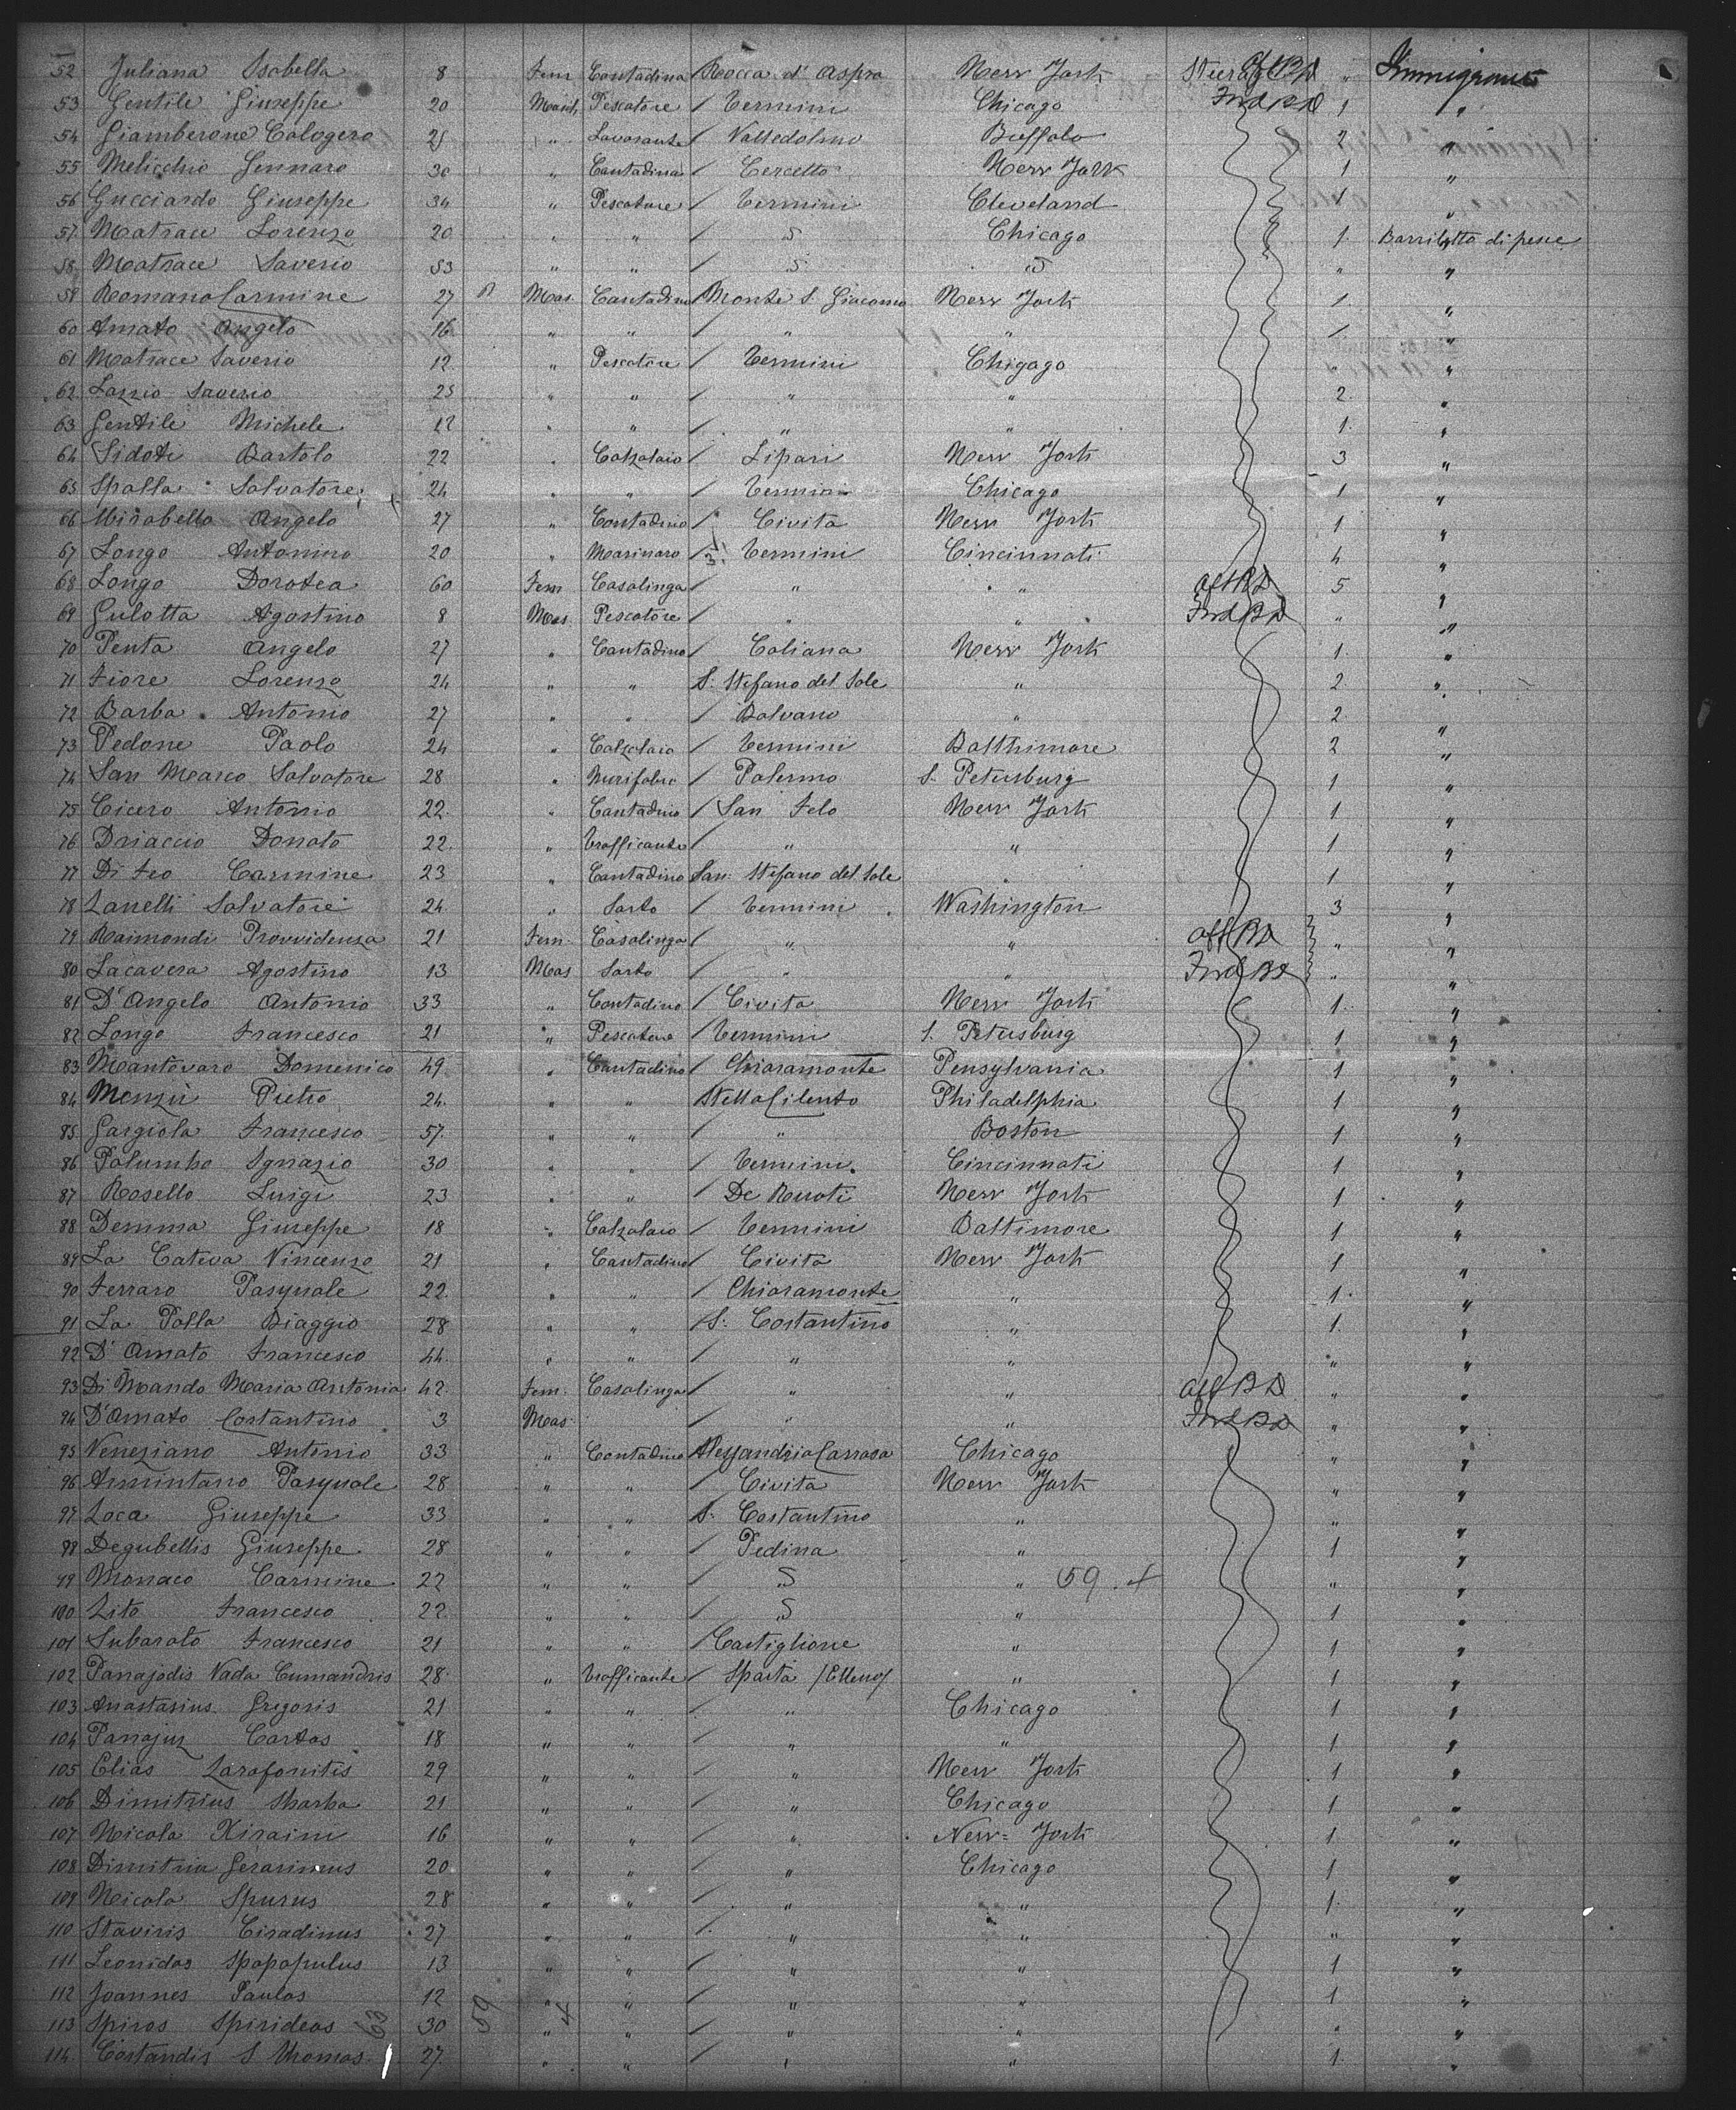 52 Juliana Isabella 8 Fem Contadina Rocca d' Aspro New York Steerage Aft BD " Immigrante
53 Gentile Giuseppe 20 Mas. Pescatore / Termini Chicago Fwd BD 1 "
54 Giamberone Calogero 25 " Lavorante / Valledolmo Buffalo 2 "
55 Melicchio Gennaro 30 " Contadina / Cercello New York 1 "
56 Gucciardo Giuseppe 34 " Pescatore / Termini Cleveland 1 "
57 Matrace Lorenzo 20 " " / " Chicago 1 Barriletto di pesce
58 Matrace Saverio 53 " " / " " " "
59 Romano Carmine 27 Mas. Contadino / Monte S. Giacomo New York 1 "
60 Amato Angelo 16 " " / " " / "
61 Matrace Saverio 12 " Pescatore / Termini Chigago " "
62 Lazzio Saverio 25 " " / " " 2 "
63 Gentile Michele 12 " " / " " 1 "
64 Sidoti Bartolo 22 " Calzolaio / Lipari New York 3 "
65 Spalla Salvatore 24 " " / Termini Chicago 1 "
66 Mirabella Angelo 27 " Contadino / Civita New York 1 "
67 Longo Antonino 20 " Marinaro / Termini Cincinnati 4 "
68 Longo Dorotea 60 Fem Casalinga / " " Aft BD 5 "
69 Gulotta Agostino 8 Mas. Pescatore / " " Fwd BD " "
70 Penta Angelo 27 " Contadino / Caliana New York 1 "
71 Fiore Lorenzo 24 " " S. Stefano del Sole " 2 "
72 Barba Antonio 27 " " / Balvano " 2 "
73 Pedone Paolo 24 " Calzolaio / Termini Balthimore 2 "
74 San Marco Salvatore 28 " / Palermo S. Petersburg 1 "
75 Cicero Antonio 22 " Contadino / San Felo New York 1 "
76 Driaccio Donato 22 " Trafficante / " " 1 "
77 Di Feo Carmine 23 " Contadino San Stefano del Sole " 1 "
78 Zanelli Salvatore 24 " Sarto / Termini Washington 3 "
79 Raimondi Provvidenza 21 Fem Casalinga / " " Aft BD " "
80 Lacavera Agostino 13 Mas Sarto / " " Fwd BD " "
81 D'Angelo Antonio 33 " Contadino / Civita New York 1 "
82 Longo Francesco 21 " Pescatore / Termini S. Petersburg 1 "
83 Mantovaro Domenico 49 " Contadino / Chiaramonte Pensylvania 1 "
84 Monzù Pietro 24 " " Stella Cilento Philadelphia 1 "
85 Gargiola Francesco 57 " " / " Boston 1 "
86 Palumbo Ignazio 30 " " / Termini Cincinnati 1 "
87 Rosello Luigi 23 " " / De Ruoti New York 1 "
88 Demma Giuseppe 18 " Calzolaio / Termini Baltimore 1 "
89 La Cateva Vincenzo 21 " Contadino / Civita New York 1 "
90 Ferraro Pasquale 22 " " / Chiaramonte " 1 "
91 La Polla Biaggio 28 " " / S. Costantino " 1 "
92 D'Amato Francesco 44 " " / " " " "
93 Di Mando Maria Antonia 42 Fem. Casalinga / " " Aft BD " "
94 D'Amato Costantino 3 Mas. / " " Fwd BD " "
95 Veneziano Antonio 33 " Contadino Alessandria Carrara Chicago " "
96 Armintano Pasquale 28 " " / Civita New York " "
97 Loca Giuseppe 33 " " / S. Costantino " " "
98 Degubellis Giuseppe 28 " " / Pedina " 1 "
99 Monaco Carmine 22 " " / " " 59 . 4 " "
100 Zito Francesco 22 " " / " " 1 "
101 Subarato Francesco 21 " " / Castiglione " 1 "
102 Panajodis Nada Cumandris 28 " Trafficante / Sparta " 1 "
103 Anastasius Gregoris 21 " " / " Chicago 1 "
104 Panajuz Cortas 18 " " / " " 1 "
105 Elias Zarafonitis 29 " " / " New York 1 "
106 Dimitrius Sharba 21 " " / " Chicago 1 "
107 Nicola Kiraini 16 " " / " New= York 1 "
108 Dimitria Gerarimus 20 " " / " Chicago 1 "
109 Nicola Spurus 28 " " / " " 1 "
110 Staviris Ciradinus 27 " " / " " " "
111 Leonidas Spapopulus 13 " " / " " 1 "
112 Joannes Paulos 12 " " / " " 1 "
113 Spiros Spirideos 63 30 59 " 4 " / " " " "
114 Costandis S Thomas 27 " " / " " 1 "